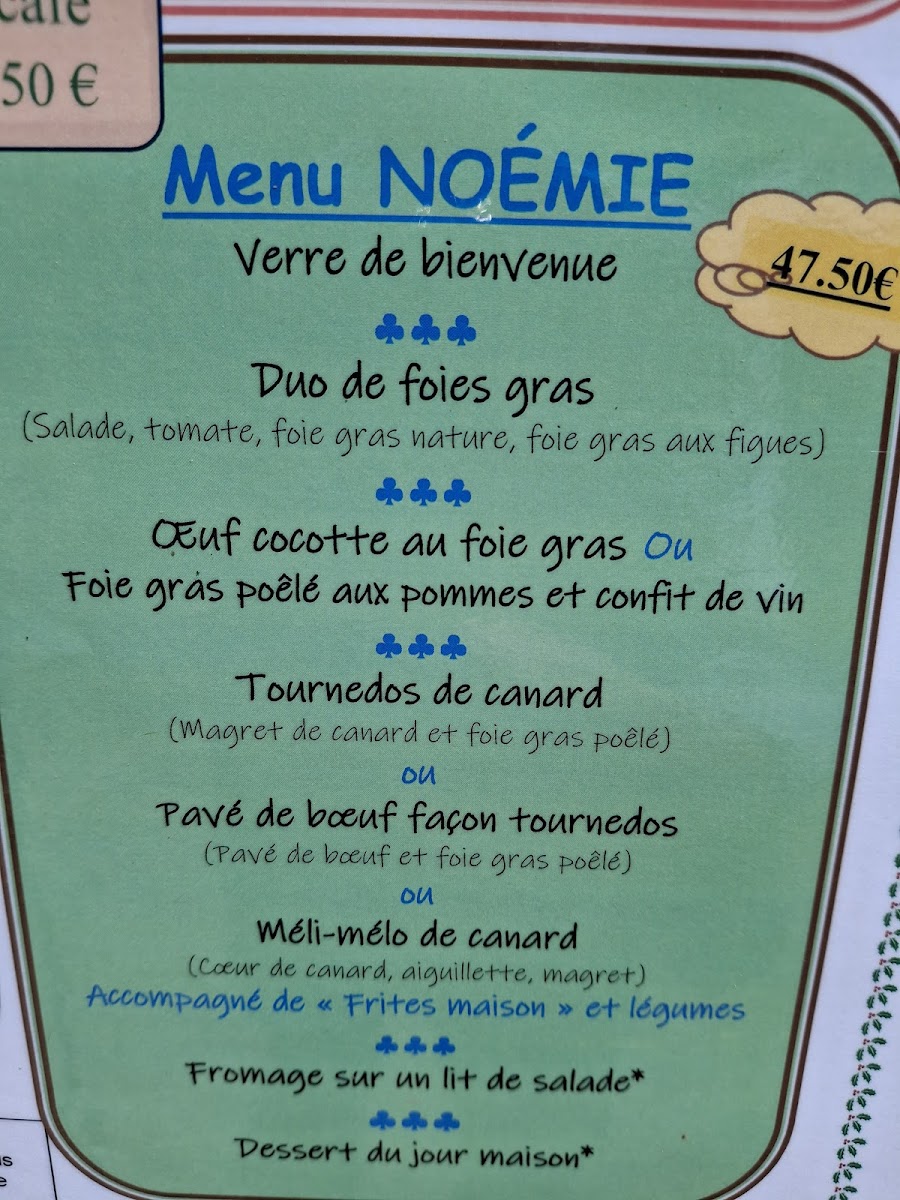 café
50 €
Menu NOÉMIE
Verre de bienvenue
47.50€
♣♣♣
Duo de foies gras
(Salade, tomate, foie gras nature, foie gras aux figues)
♣♣♣
Œuf cocotte au foie gras Ou
Foie gras poêlé aux pommes et confit de vin
♣♣♣
Tournedos de canard
(Magret de canard et foie gras poêlé)
ou
Pavé de bœuf façon tournedos
(Pavé de bœuf et foie gras poêlé)
ou
Méli-mélo de canard
(Cœur de canard, aiguillette, magret)
Accompagné de « Frites maison » et légumes
♣♣♣
Fromage sur un lit de salade*
♣♣♣
Dessert du jour maison*